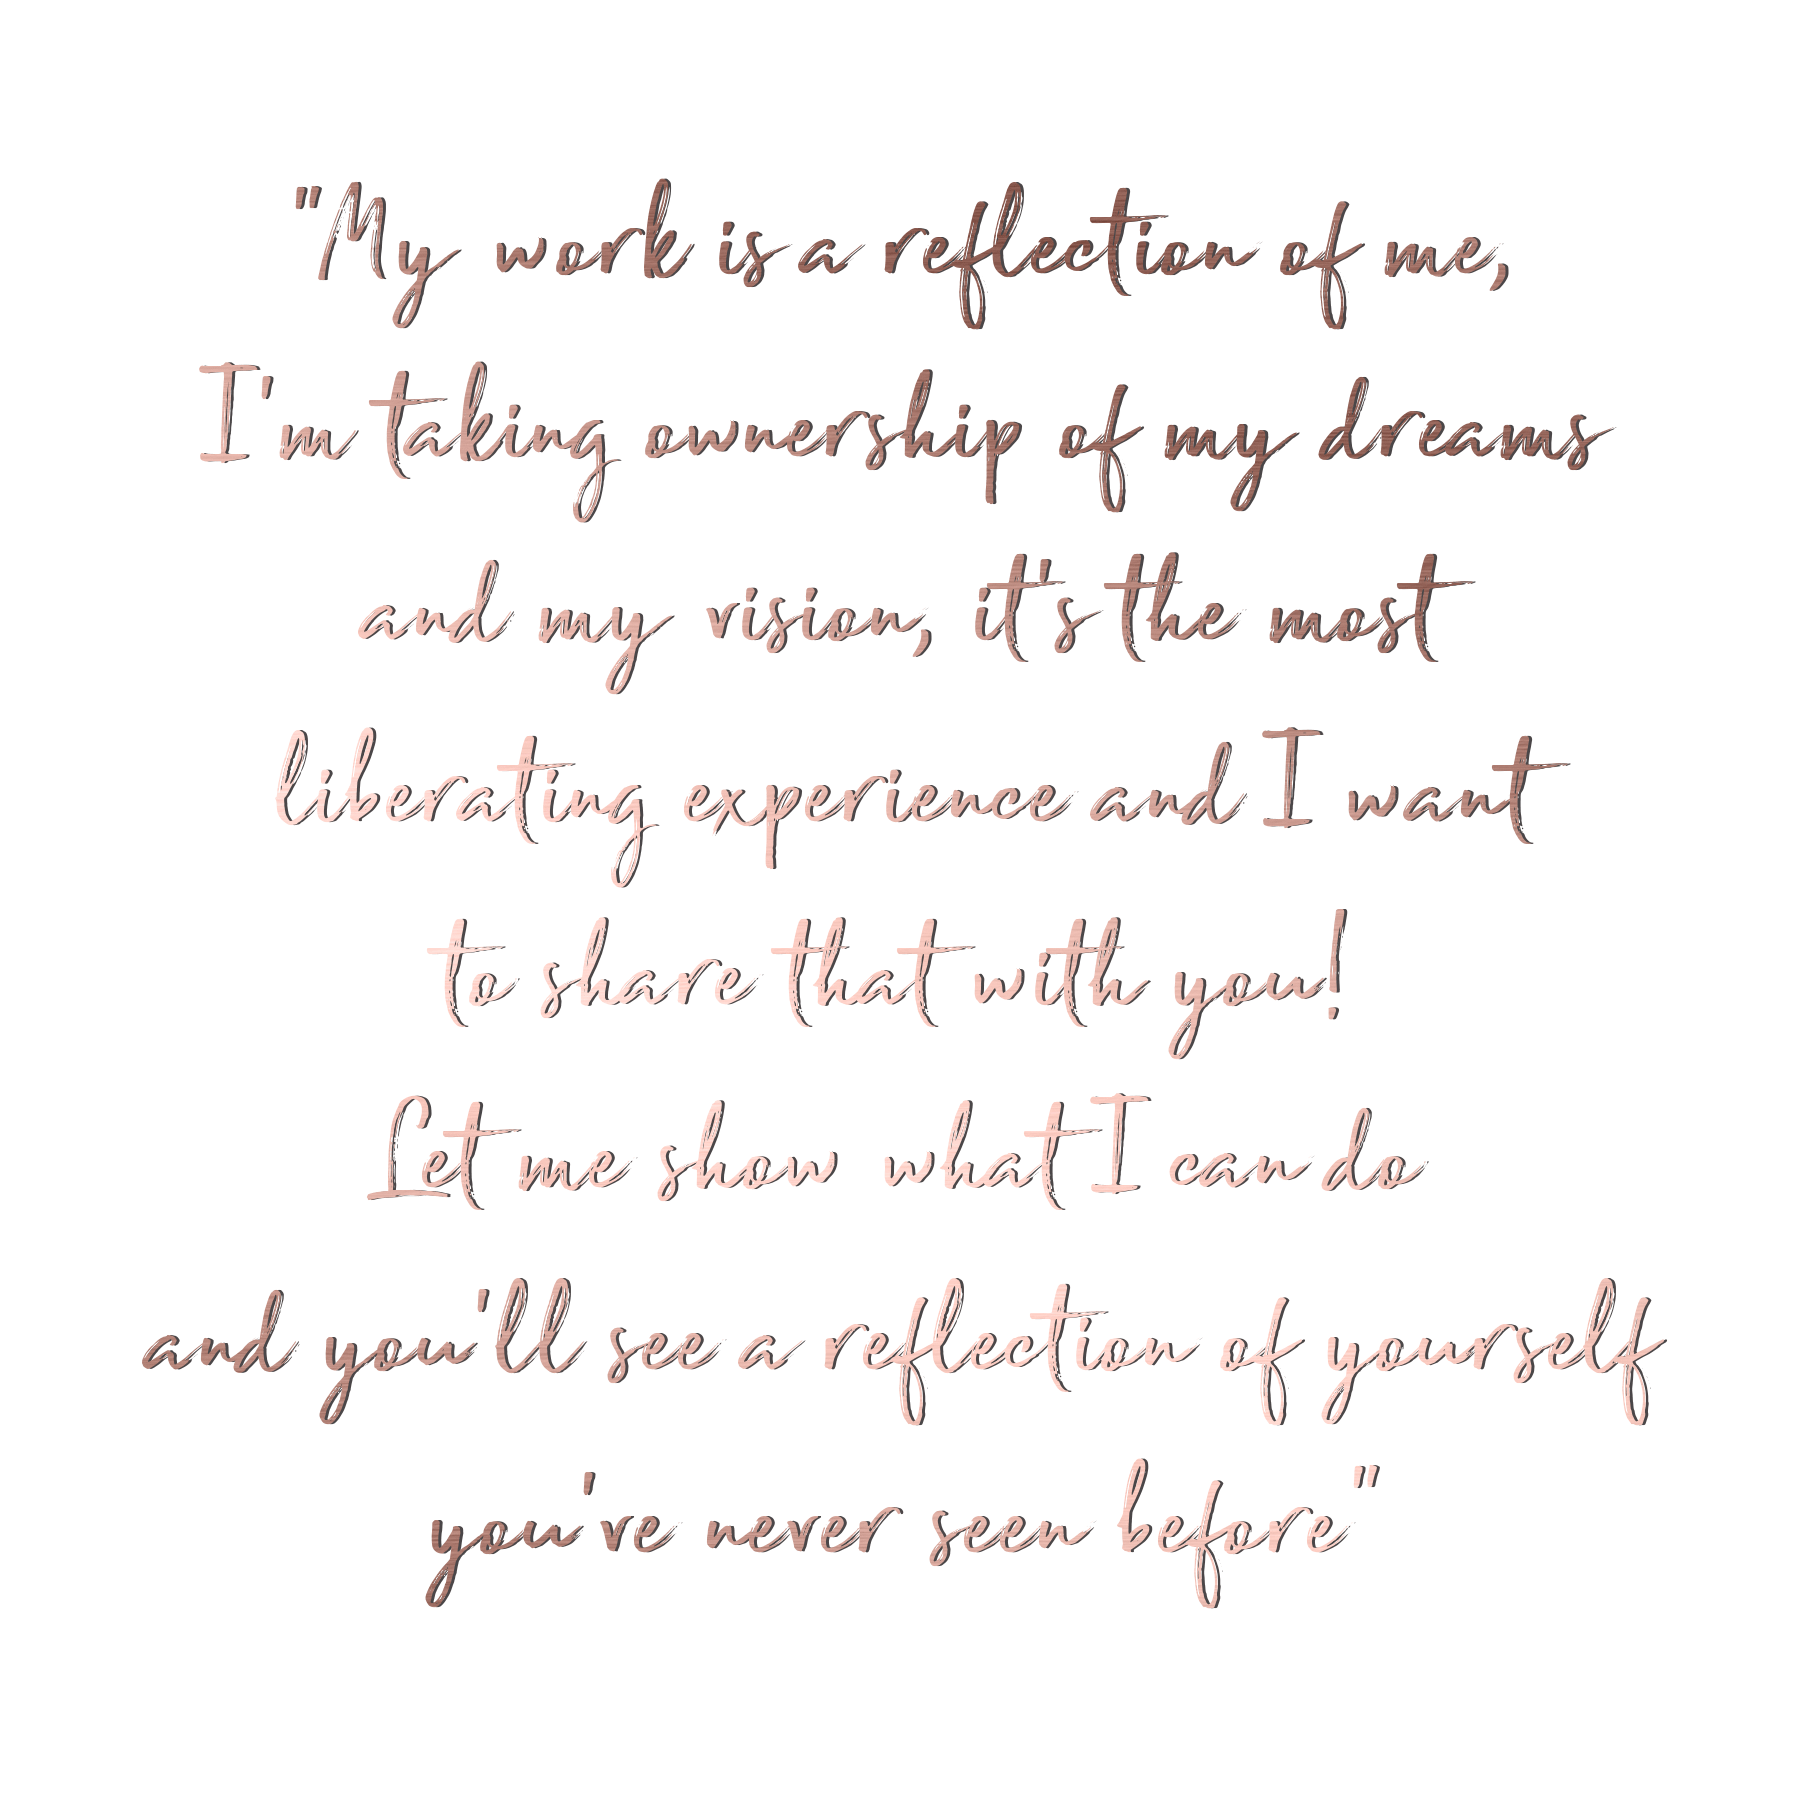 "My work is a reflection of me,
I'm taking ownership of my dreams
and my vision, it's the most
liberating experience and I want
to share that with you!
Let me show what I can do
and you'll see a reflection of yourself
you've never seen before"